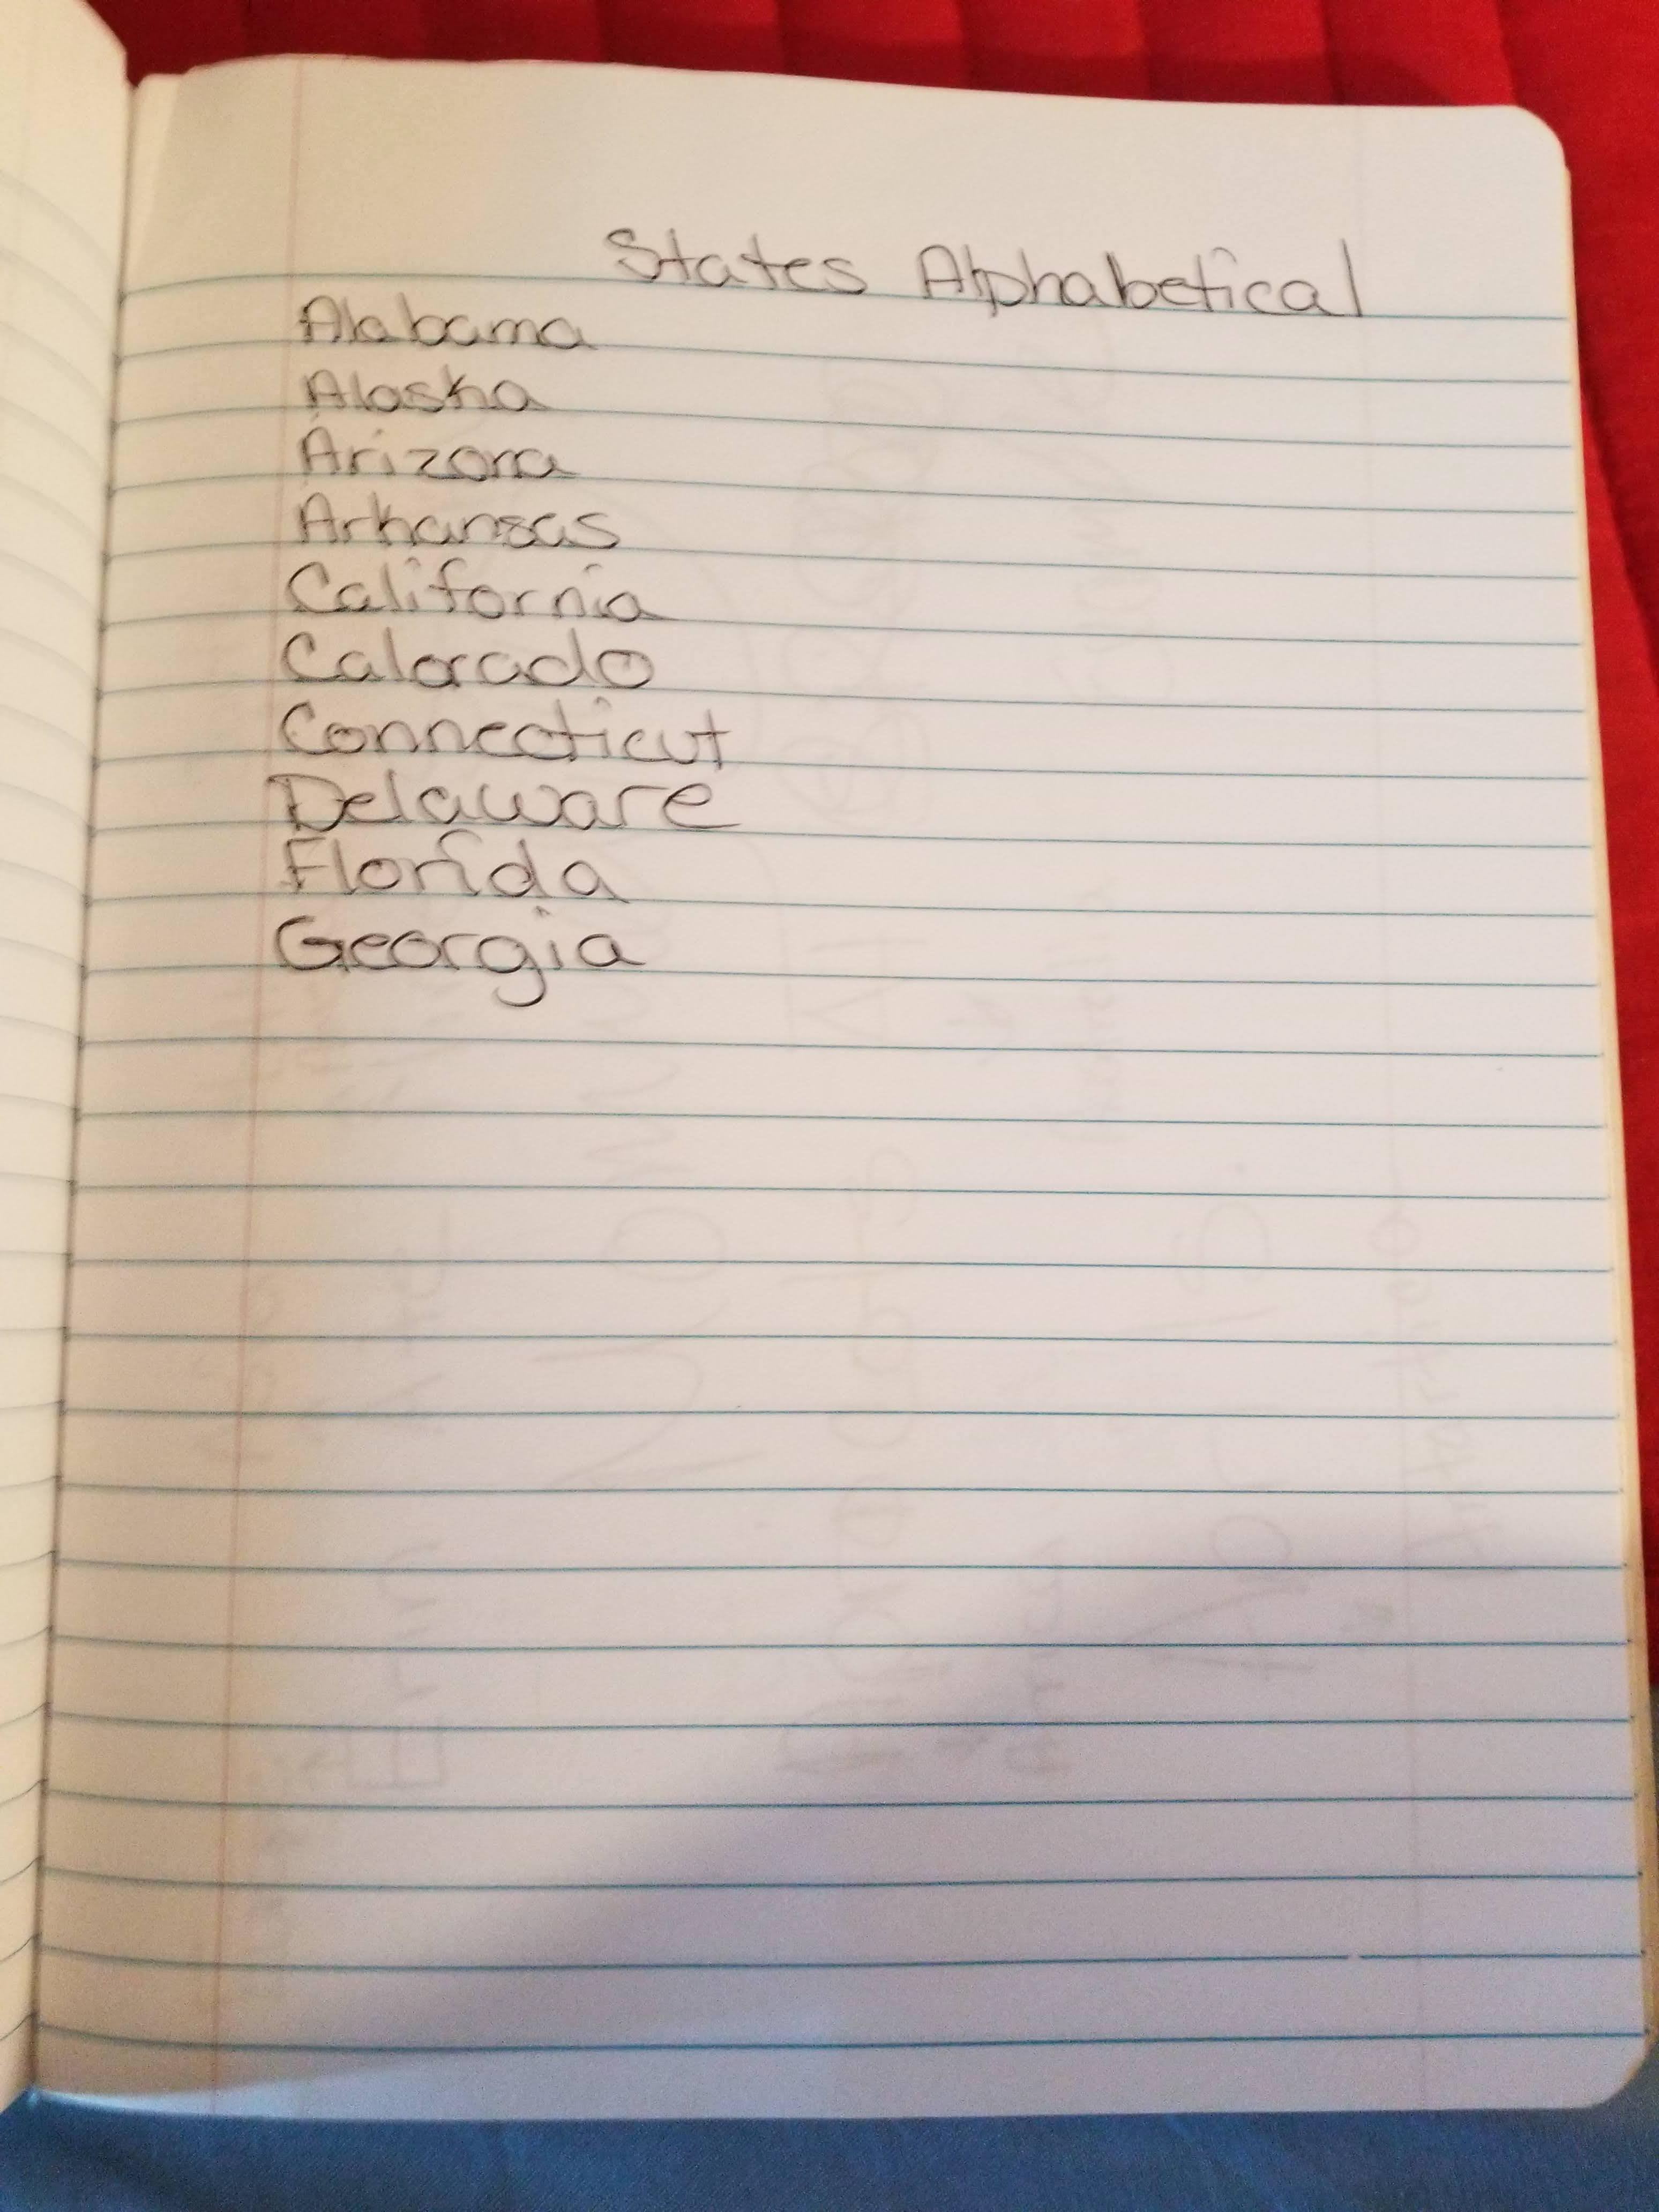 States Alphabetical
Alabama
Alaska
Arizona
Arkansas
California
Calorado
Connecticut
Delaware
Florida
Georgia